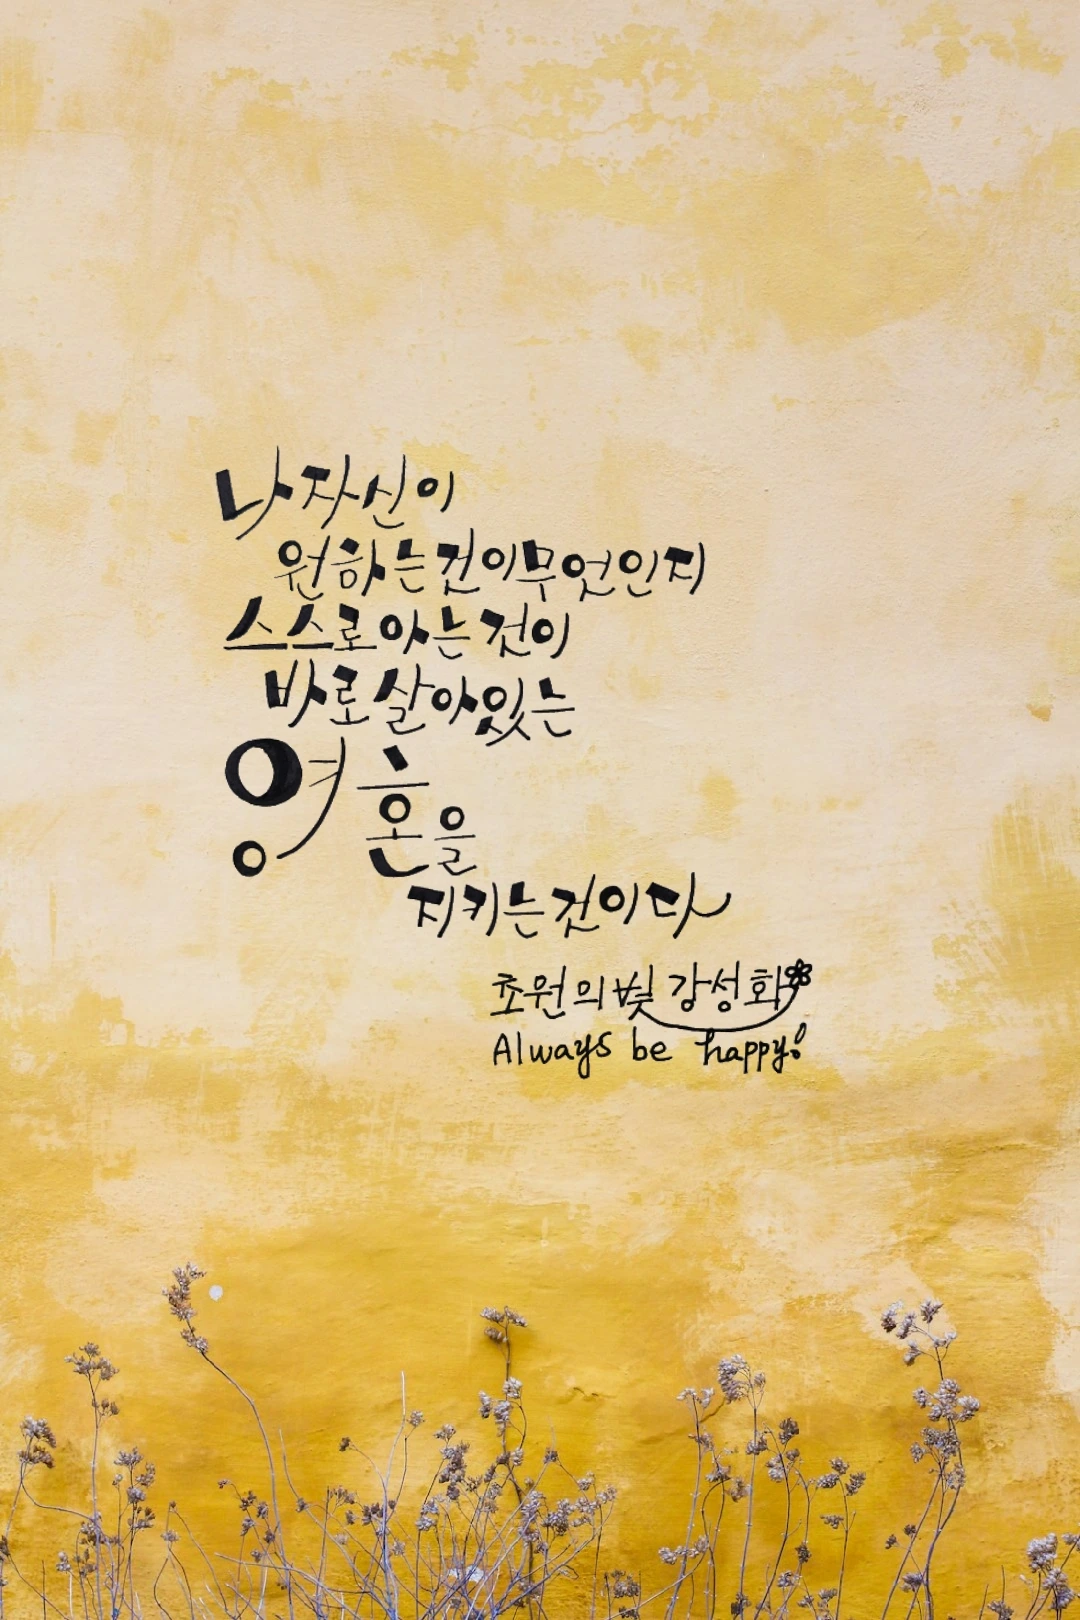 나 자신이
원하는 것이 무엇인지
스스로 아는 것이
바로 살아있는
영혼을
지키는 것이다
초원의 빛 강성화
Always be happy!